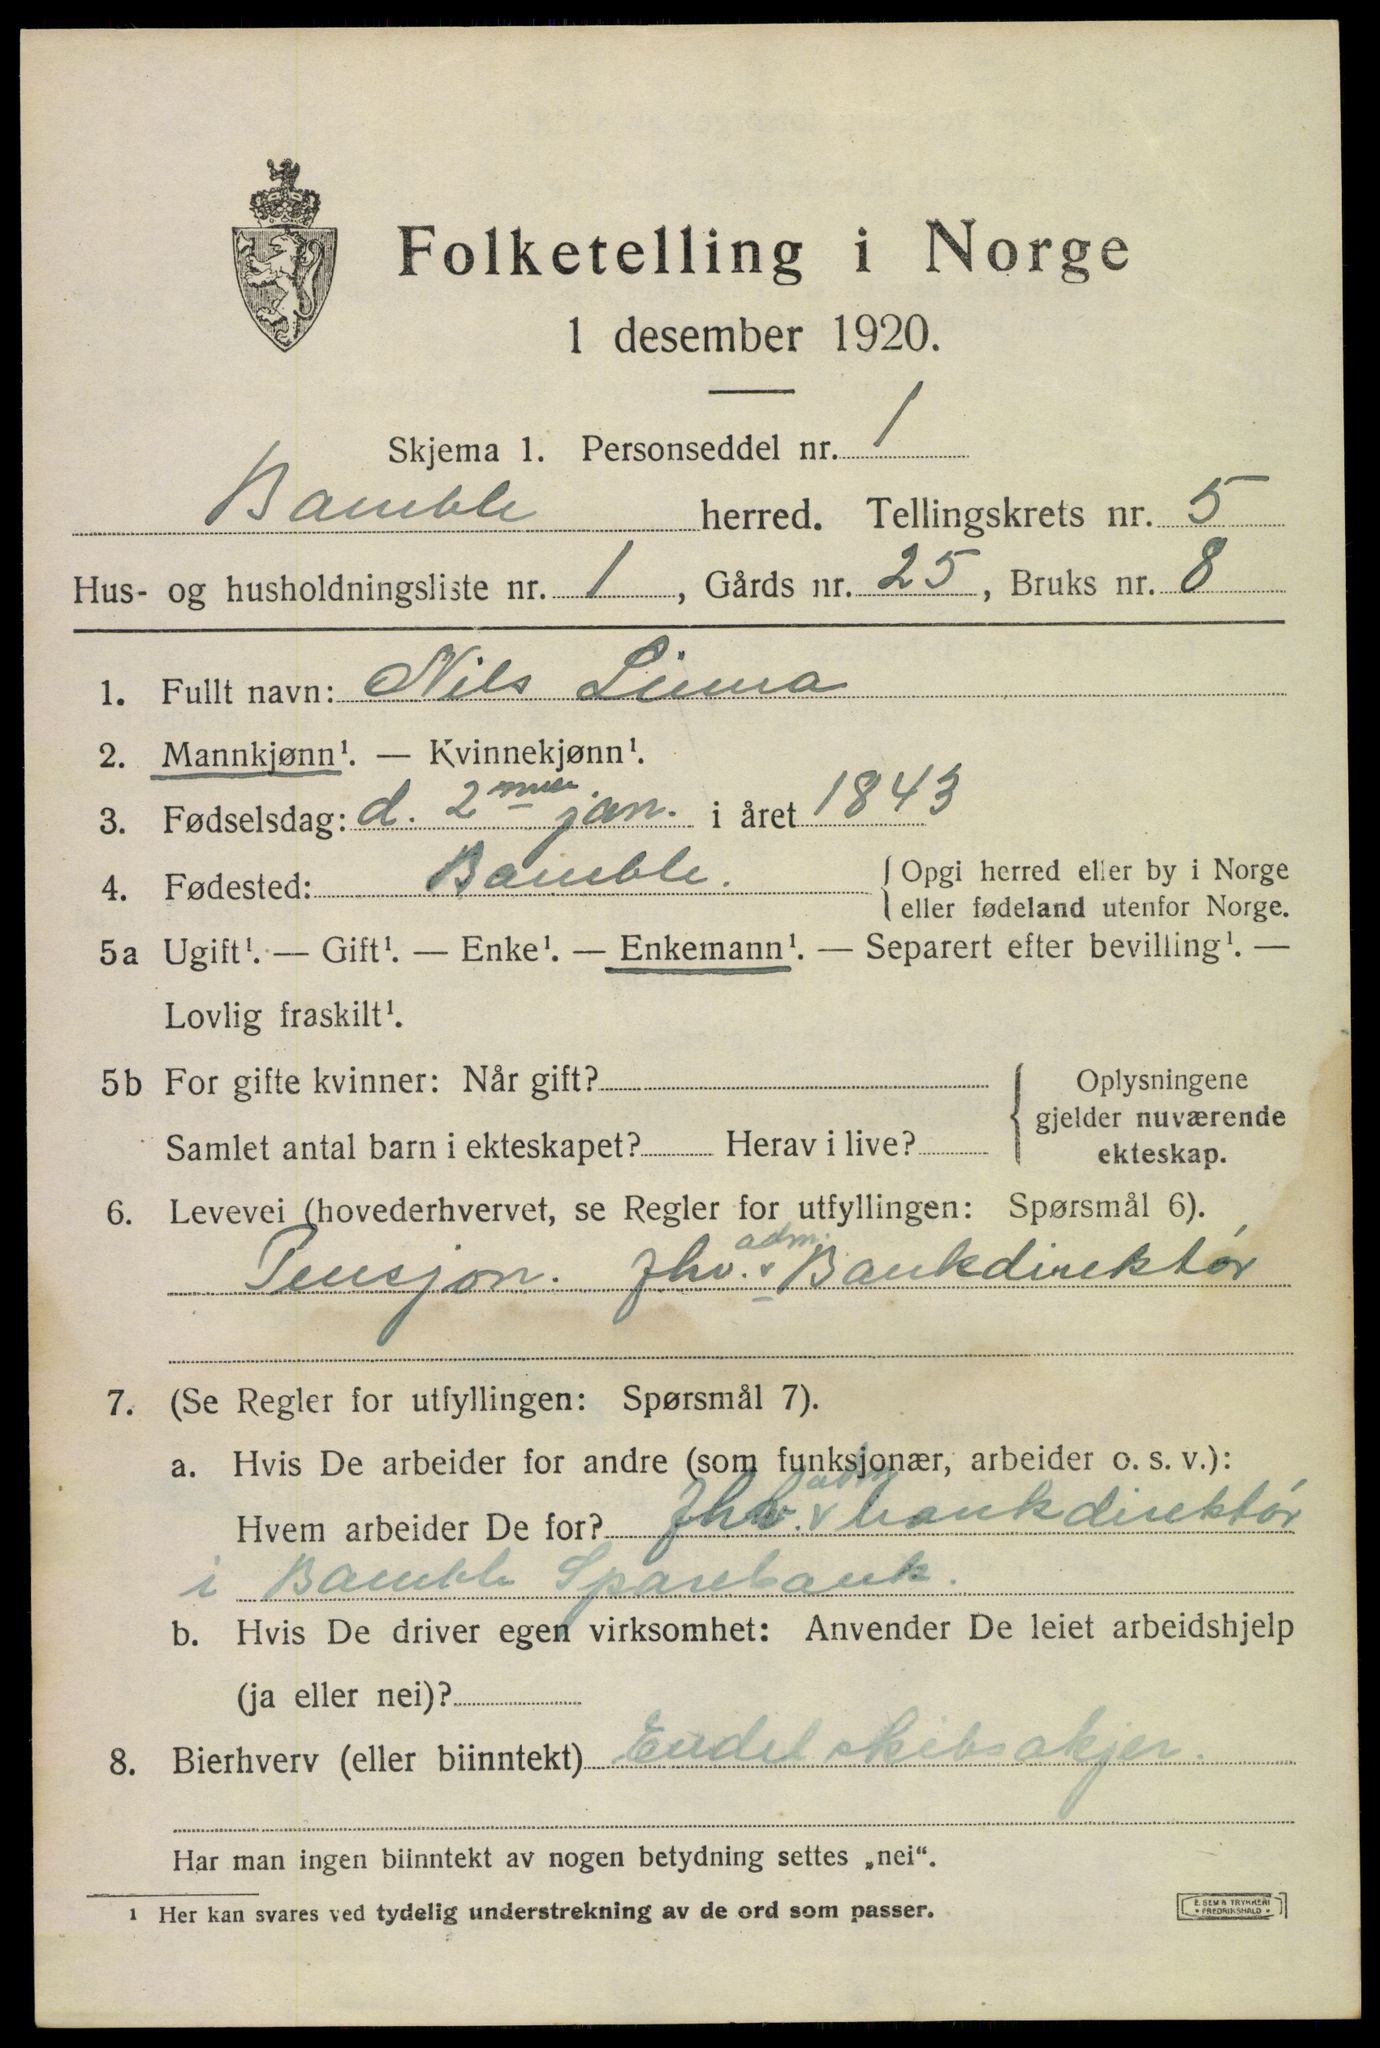 Folketelling i Norge
1 desember 1920.
Skjema 1. Personseddel nr. 1
Bamble herred. Tellingskrets nr. 5
Hus- og husholdningsliste nr. 1, Gårds nr. 25, Bruks nr. 8
1. Fullt navn: Nils Linna
2. Mannkjønn¹. — Kvinnekjønn¹.
3. Fødselsdag: d. 2 jan. i året 1843
4. Fødested: Bamble. { Opgi herred eller by i Norge
eller fødeland utenfor Norge.
5a Ugift¹. — Gift¹. — Enke¹. — Enkemann¹. — Separert efter bevilling¹. —
Lovlig fraskilt¹.
5b For gifte kvinner: Når gift? { Oplysningene
gjelder nuværende
ekteskap.
Samlet antal barn i ekteskapet? Herav i live?
6. Levevei (hovederhvervet, se Regler for utfyllingen: Spørsmål 6).
Pensjon. fhv. adm. Bankdirektør
7. (Se Regler for utfyllingen: Spørsmål 7).
a. Hvis De arbeider for andre (som funksjonær, arbeider o. s. v.):
Hvem arbeider De for? fhv. adm bankdirektør
i Bamble Sparebank.
b. Hvis De driver egen virksomhet: Anvender De leiet arbeidshjelp
(ja eller nei)?
8. Bierhverv (eller biinntekt) Endel skibsakjer.
Har man ingen biinntekt av nogen betydning settes „nei“.
¹ Her kan svares ved tydelig understrekning av de ord som passer.
E. SEM'S TRYKKERI
FREDRIKSHALD